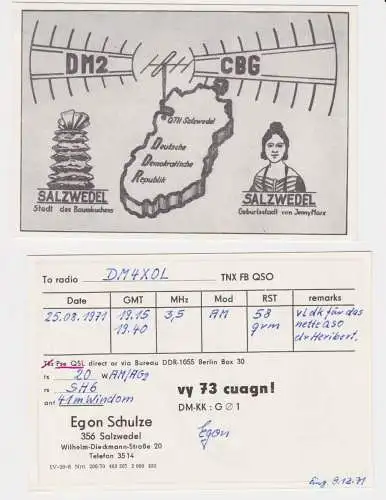 DM2 CBG
QTH Salzwedel
Deutsche
Demokratische
Republik
SALZWEDEL
Stadt des Baumkuchens
SALZWEDEL
Geburtsstadt von Jenny Marx
To radio DM4XOL TNX FB QSO
Date GMT MHz Mod RST remarks
25.08.1971 19.15 3,5 AM 58 vl dk für das
19.40 qrm nette qso
dr Heribert.
Tks Pse QSL direct or via Bureau DDR-1055 Berlin Box 30
tx 20 W AM/
rx SH6
ant 41m Windom
vy 73 cuagn!
DM-KK: GØ1
Egon Schulze
356 Salzwedel
Wilhelm-Dieckmann-Straße 20
Telefon 3514
Egon
Eing. 9.12.71